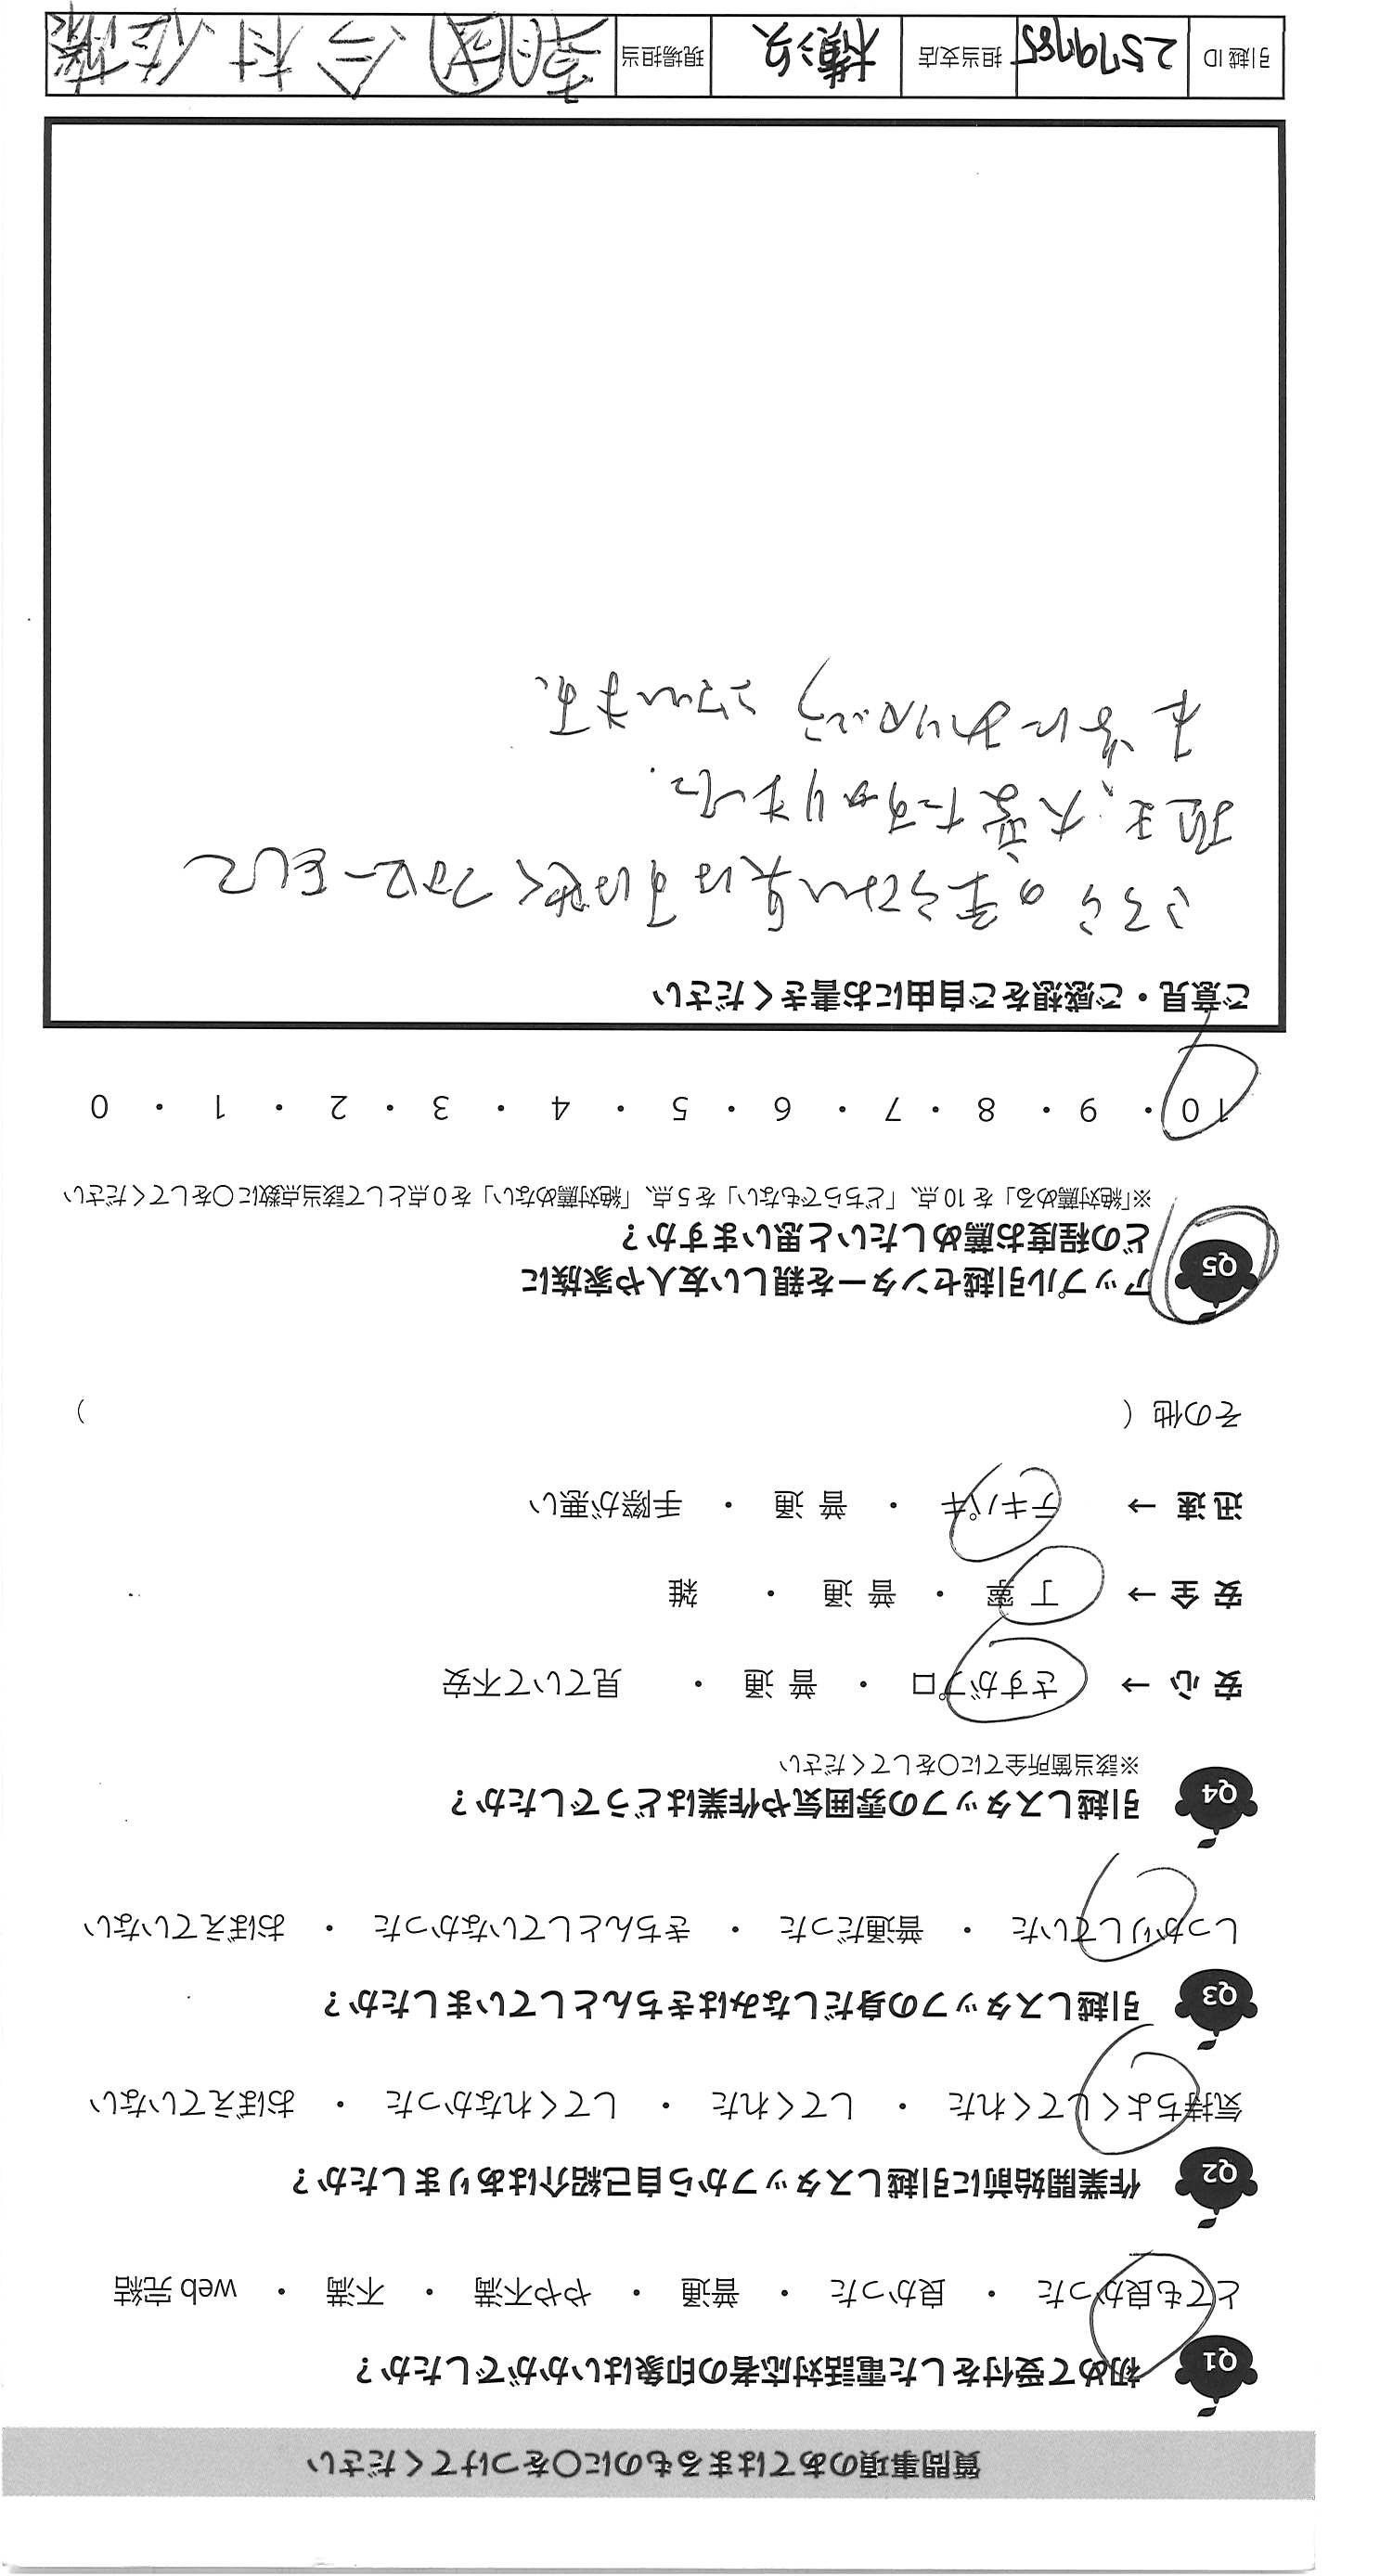 質問事項のあてはまるものに〇をつけてください
Q1 初めて受付をした電話対応者の印象はいかがでしたか？
とても良かった ・ 良かった ・ 普通 ・ やや不満 ・ 不満 ・ web 完結
Q2 作業開始前に引越しスタッフから自己紹介はありましたか？
気持ちよくしてくれた ・ してくれた ・ してくれなかった ・ おぼえていない
Q3 引越しスタッフの身だしなみはきちんとしていましたか？
しっかりしていた ・ 普通だった ・ きちんとしていなかった ・ おぼえていない
Q4 引越しスタッフの雰囲気や作業はどうでしたか？
※該当箇所全てに〇をしてください
安 心 → さすがプロ ・ 普 通 ・ 見ていて不安
安 全 → 丁 寧 ・ 普 通 ・ 雑
迅 速 → テキパキ ・ 普 通 ・ 手際が悪い
その他（ ）
Q5 アップル引越センターを親しい友人や家族に
どの程度お薦めしたいと思いますか？
※「絶対薦める」を 10 点、「どちらでもない」を 5 点、「絶対薦めない」を 0 点として該当点数に〇をしてください
10 ・ 9 ・ 8 ・ 7 ・ 6 ・ 5 ・ 4 ・ 3 ・ 2 ・ 1 ・ 0
ご意見・ご感想をご自由にお書きください
こちらの至らない点はすばやくフォローをして
頂き、大変たすかりました.
本当にありがとうございます.
引越 ID 2579785 担当支店 横浜 現場担当 今村 佐藤